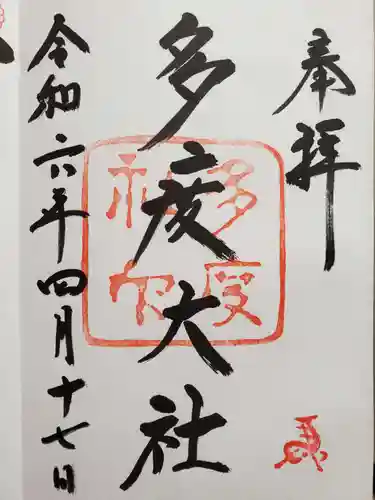 奉拝
多度大社
多度
神社
令和六年四月十七日